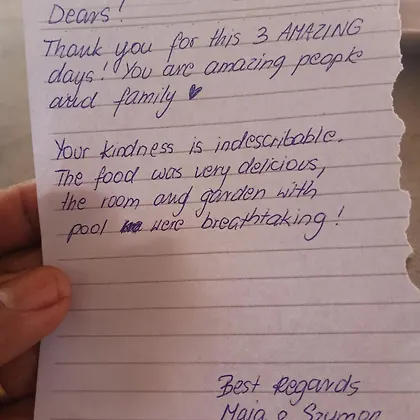 Dears!
Thank you for this 3 AMAZING
days! You are amazing people
and family ♥
Your kindness is indescribable.
The food was very delicious,
the room and garden with
pool were breathtaking!
Best Regards
Maja
Szymon